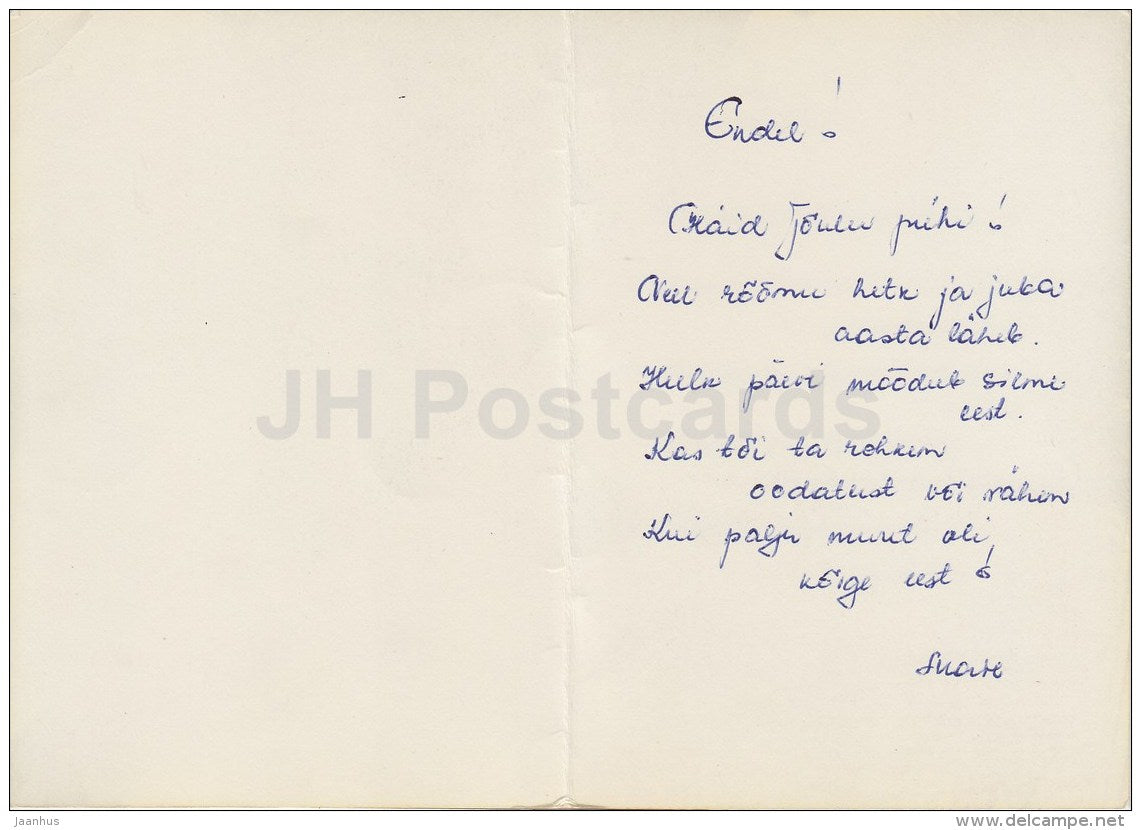 Endel!
Häid Jõulu pühi!
Veel rõõmu hetk ja juba
aasta läheb.
Hulk päevi möödub silme
eest.
Kas tõi ta rohkem
oodatust või vähem
Kui palju muret oli,
kõige eest!
JH Postcards
Jaanhus
https://www.delcampe.net